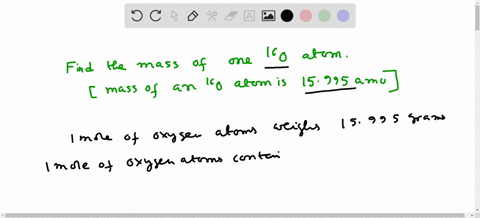 Find the mass of one ¹⁶O atom.
[ mass of an ¹⁶O atom is 15.995 amu]
1 mole of oxygen atoms weighs 15.995 grams
1 mole of oxygen atoms contai